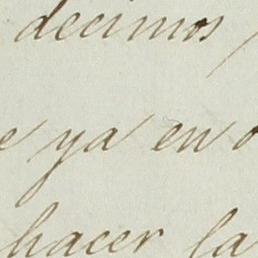 decimos,
e ya en o
hacer la